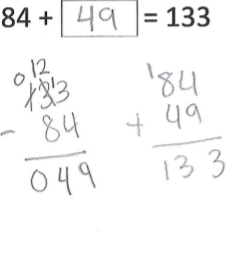 84 + 49 = 133
0 12 1
133
- 84
049
1
84
+ 49
133